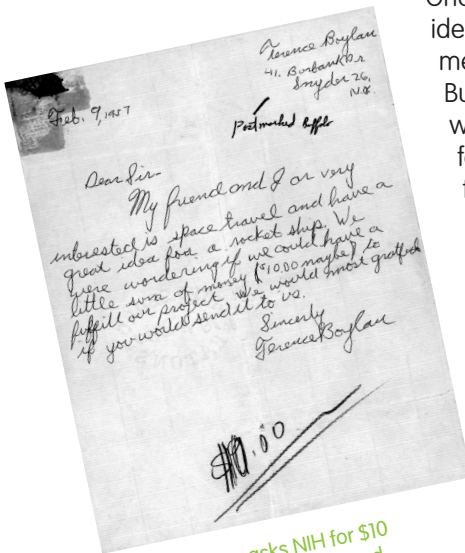 Terence Boylan
41. Burbank Dr
Snyder 26,
N.Y.
Feb. 9, 1957
Postmarked Buffalo
Dear Sir-
My friend and I ar very
interested is space travel and have a
great idea for a rocket ship. We
were wondering if we could have a
little sum of money ($10.00 maybe) to
fulfill our project. We would most gratfull
if you would send it to us.
Sincerly
Terence Boylan
$10.00
asks NIH for $10
ide
me
Bu
w
f